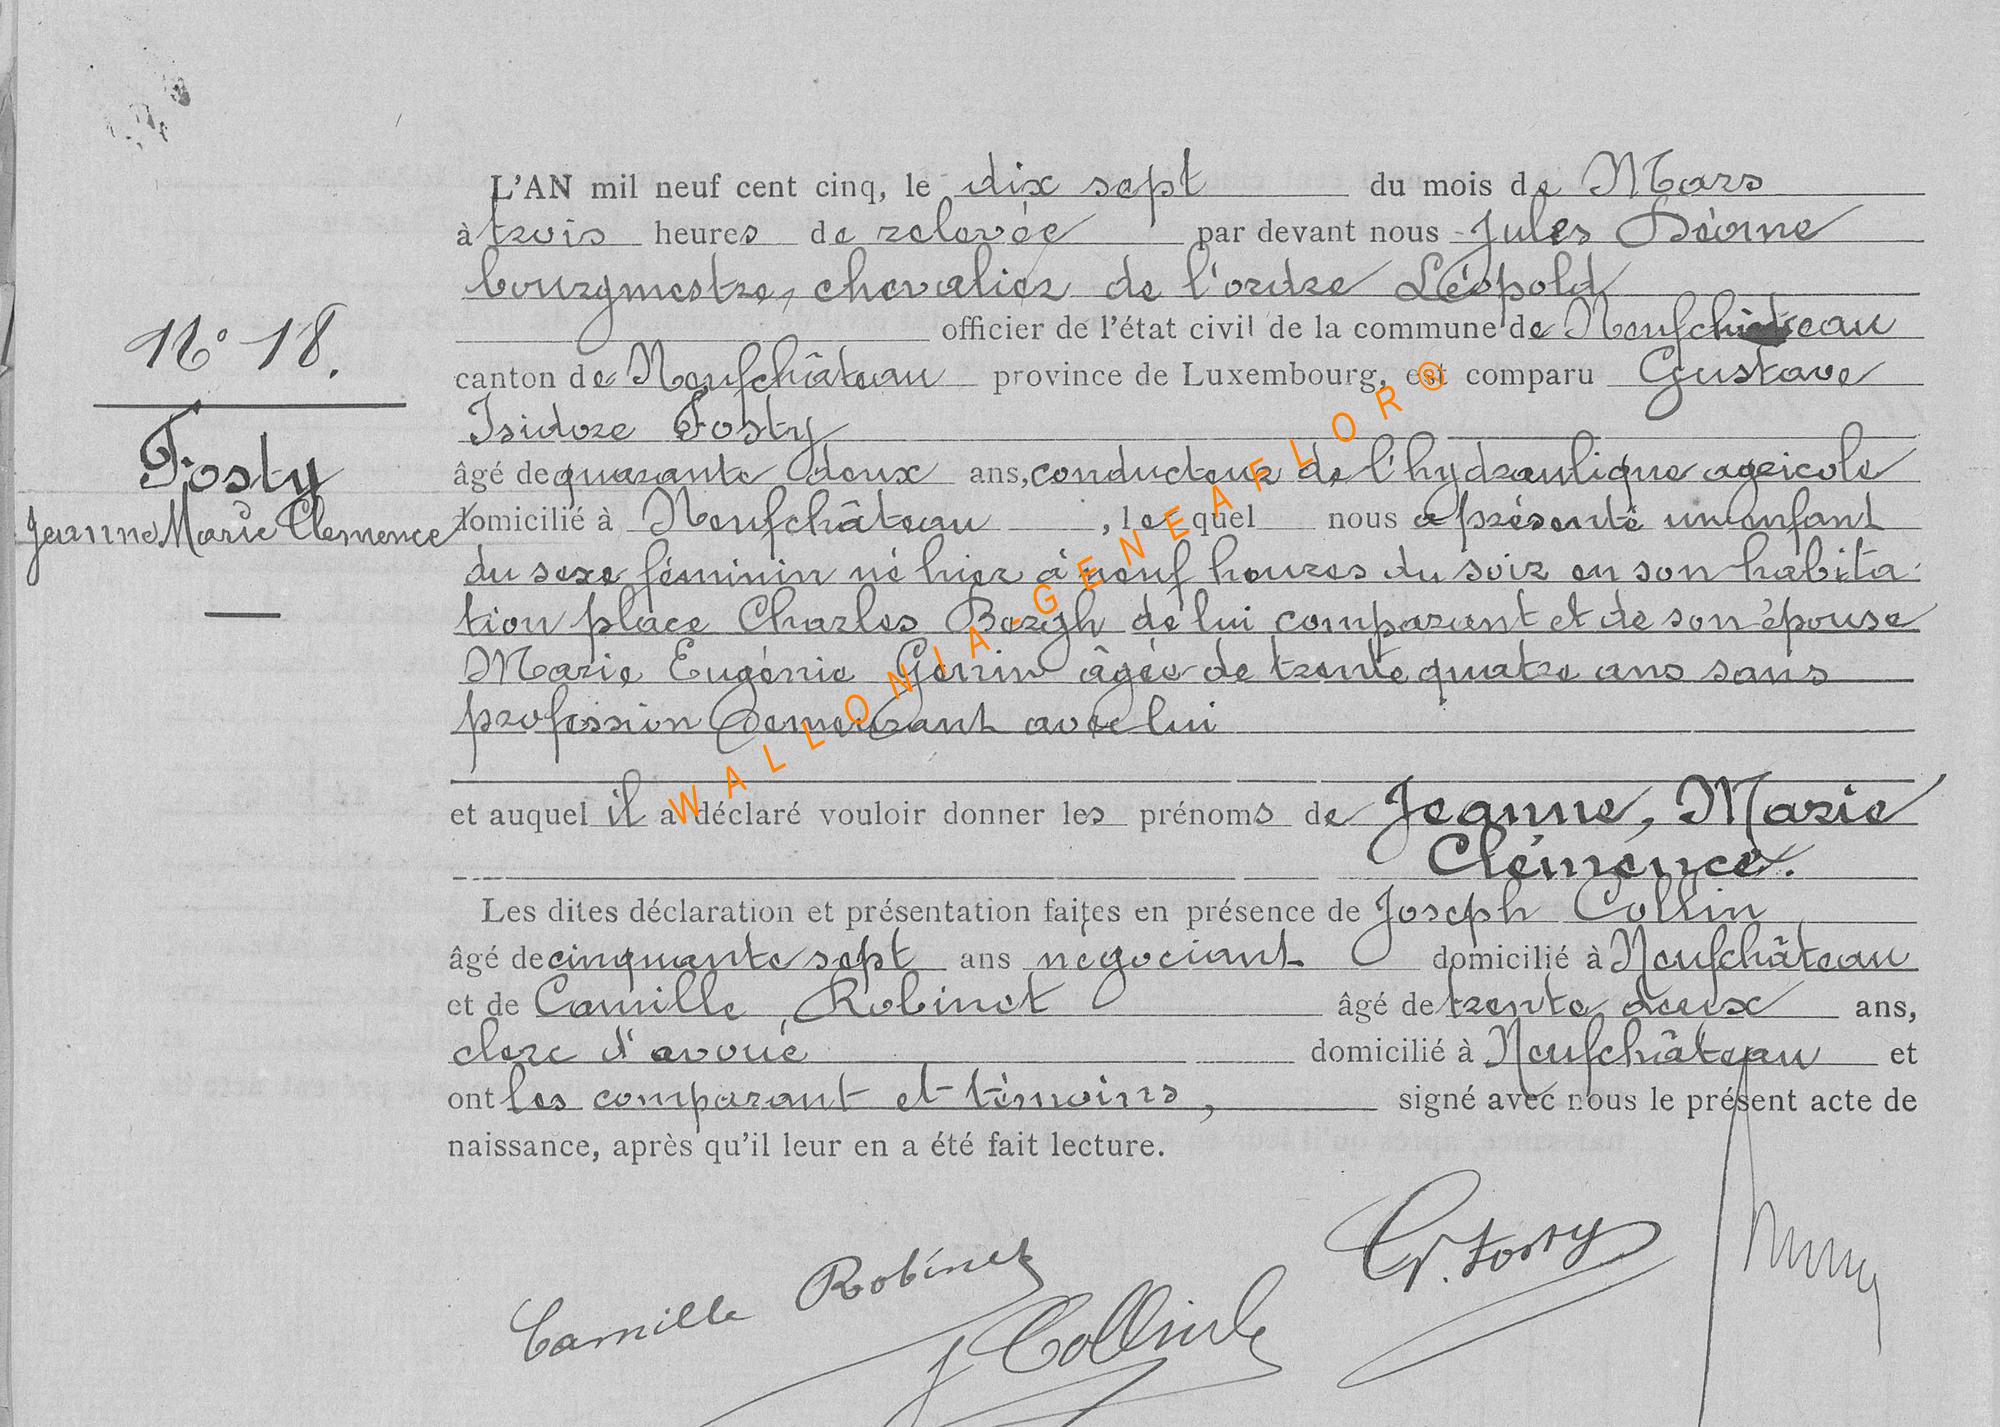 L'AN mil neuf cent cinq, le dix sept du mois de Mars
à trois heures de relevée par devant nous Jules
bourgmestre, chevalier de l'ordre Léopold
officier de l'état civil de la commune de Neufchâteau
canton de Neufchâteau province de Luxembourg, est comparu Gustave
Isidore Fosty
âgé de quarante deux ans, conducteur de l'hydraulique agricole
domicilié à Neufchâteau, lequel nous a présenté un enfant
du sexe féminin né hier à neuf heures du soir en son habita-
tion place Charles Bergh de lui comparant et de son épouse
Marie Eugénie Gerin âgée de trente quatre ans sans
profession demeurant avec lui
et auquel il a déclaré vouloir donner les prénoms de Jeanne, Marie
Clémence.
Les dites déclaration et présentation faites en présence de Joseph Collin
âgé de cinquante sept ans négociant domicilié à Neufchâteau
et de Camille Robinet âgé de trente deux ans,
clerc d'avoué domicilié à Neufchâteau et
ont les comparant et témoins, signé avec nous le présent acte de
naissance, après qu'il leur en a été fait lecture.
N° 18.
Fosty
Jeanne Marie Clemence
Camille Robinet
J Collin
G. Fosty
WALLONIA-GENEAFLOR®